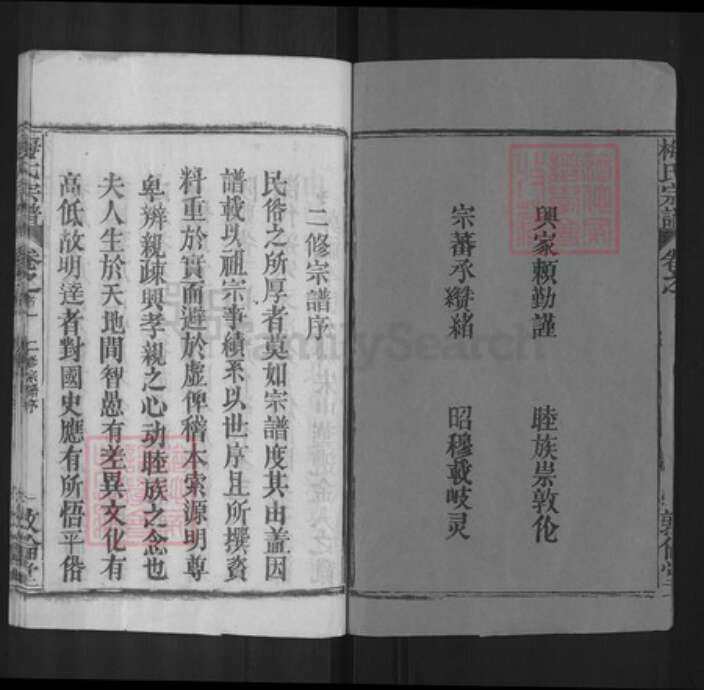 梅氏宗譜 卷之
興家賴勤謹 睦族崇敦伦
宗蕃承纘緒 昭穆載岐灵
敦倫堂
二修宗譜序
民俗之所厚者莫如宗譜度其由盖因
譜載以祖宗事績系以世序且所撰資
料重於實而避於虛俾稽本索源明尊
卑辨親疎興孝親之心动睦族之念也
夫人生於天地間智愚有差異文化有
高低故明達者對國史應有所悟平俗
梅氏宗譜 卷之首 二修宗譜序 敦倫堂
FamilySearch